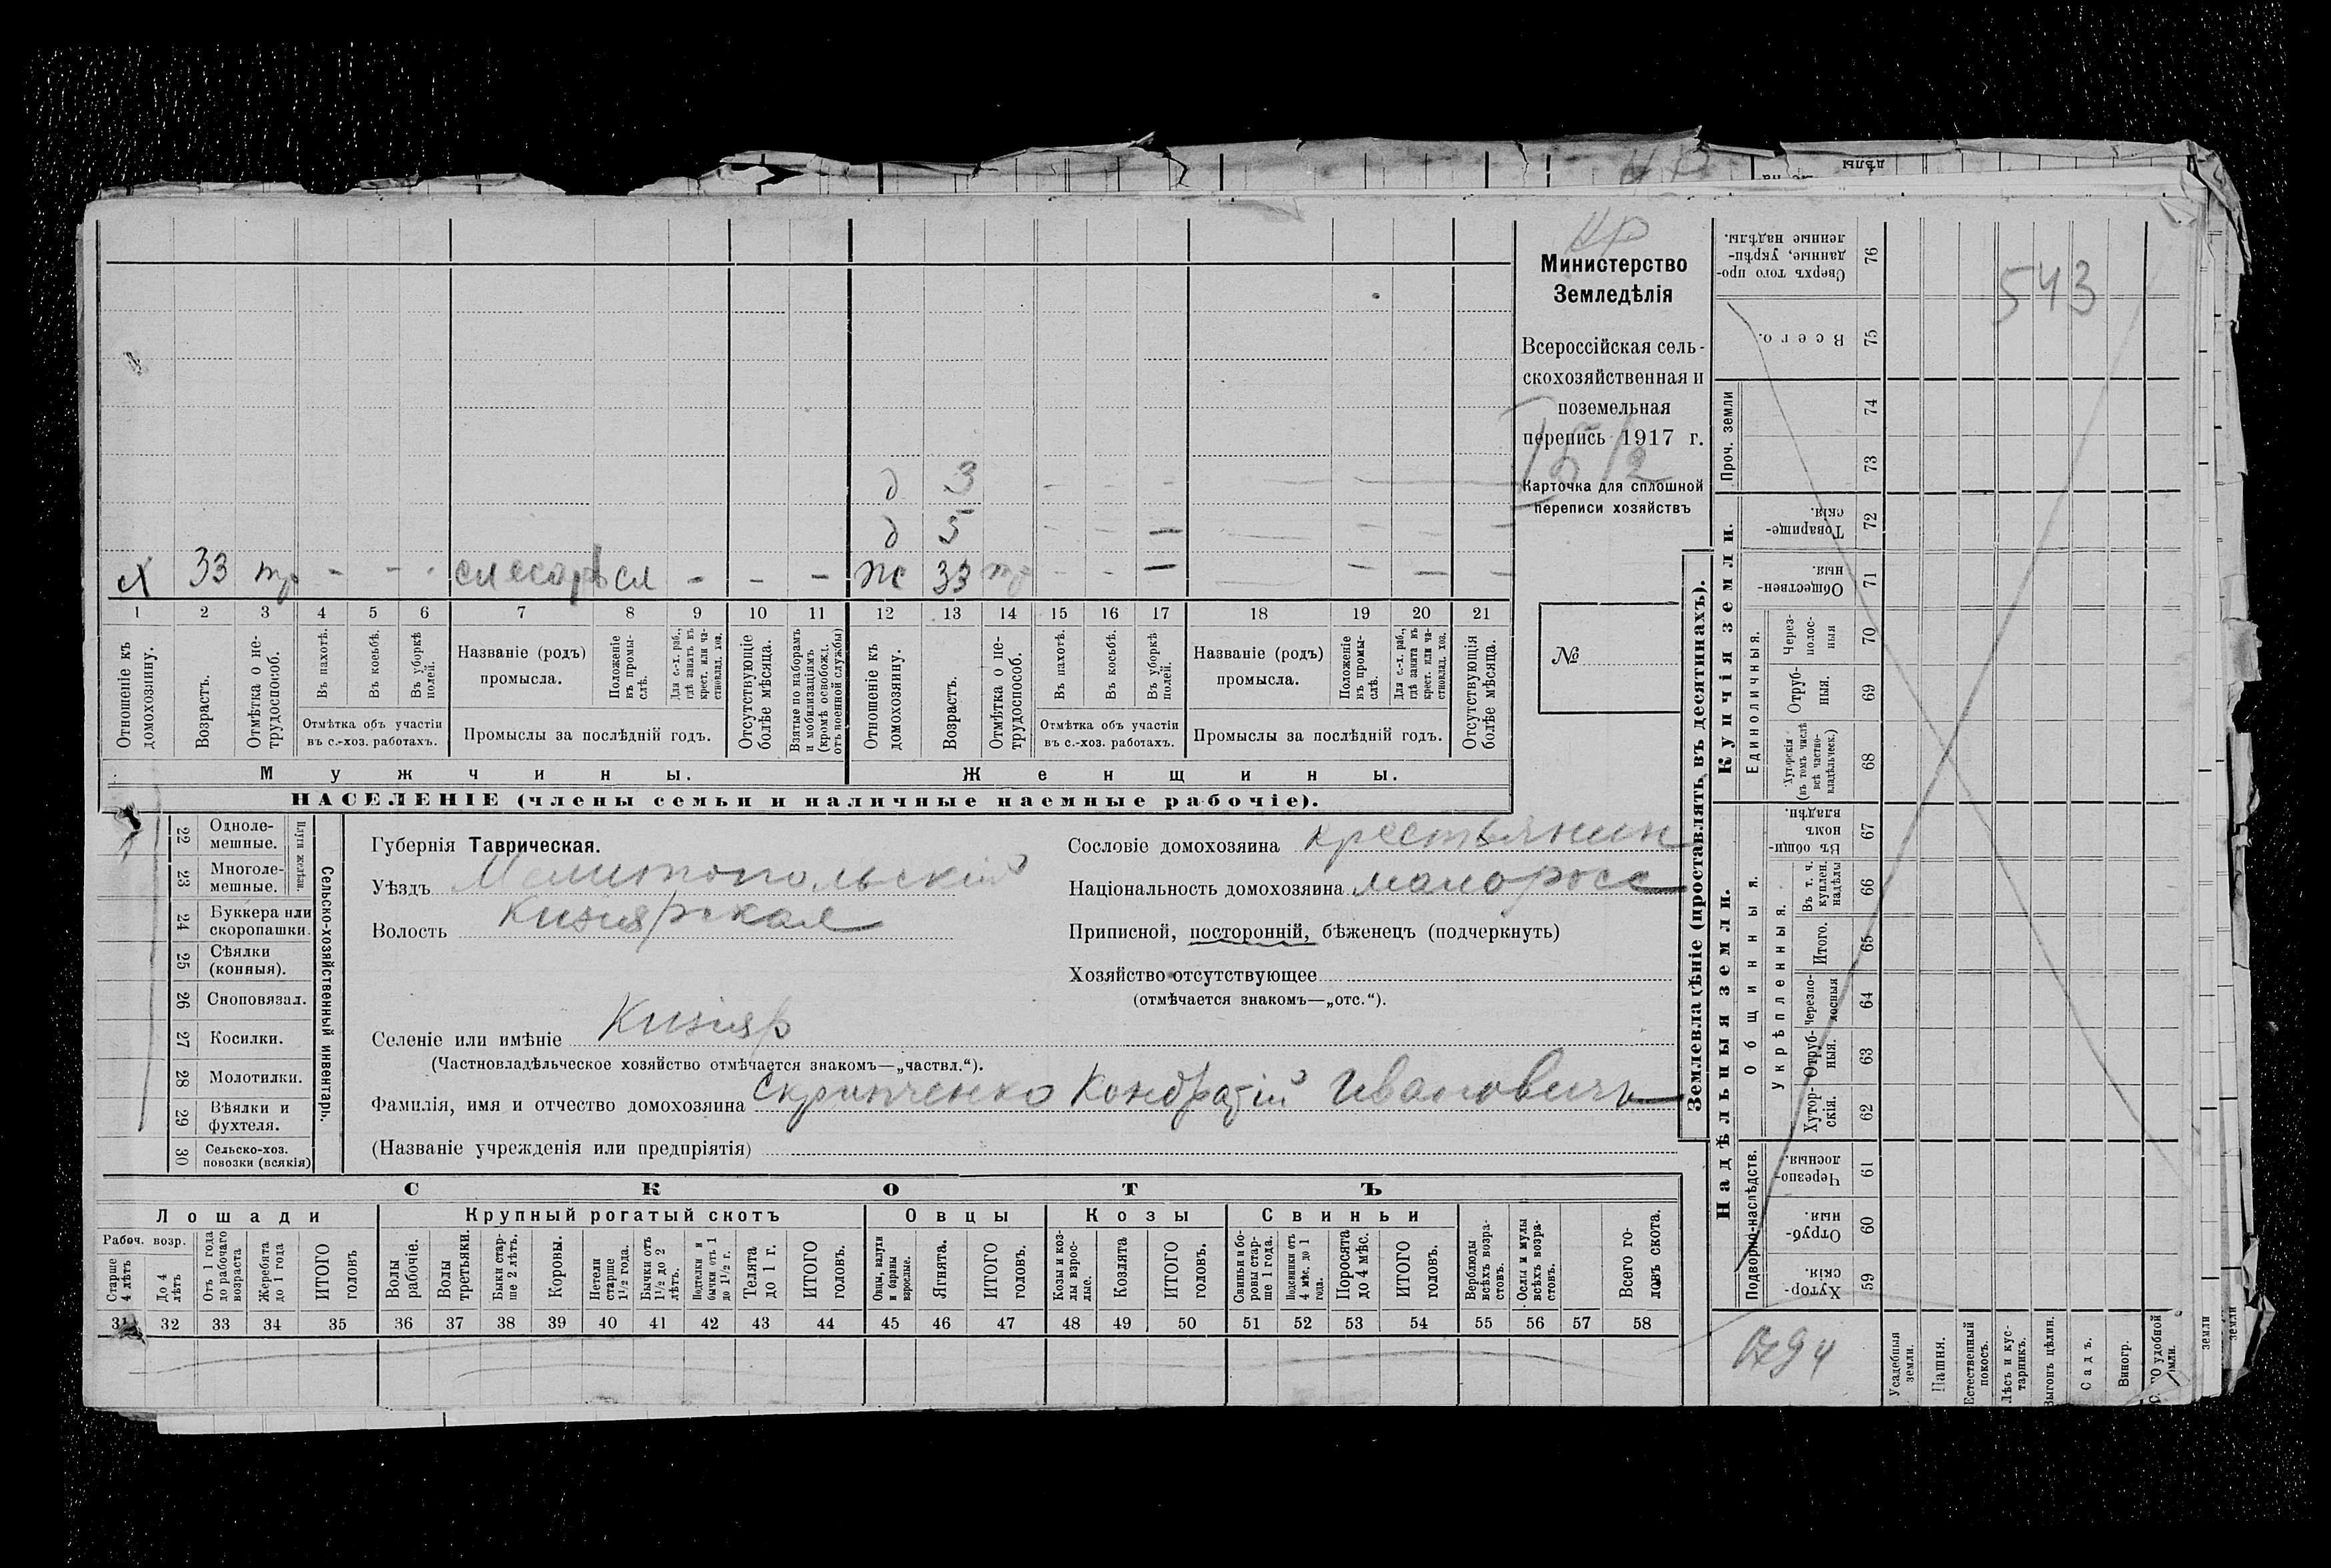 Кр
Министерство
Земледѣлія
Всероссійская сель-
скохозяйственная и
поземельная
перепись 1917 г.
Карточка для сплошной
переписи хозяйствъ
№
д 3
д 5
х 33 тр - - - слесарь сл - - - ж 33 тр - - -
1 2 3 4 5 6 7 8 9 10 11 12 13 14 15 16 17 18 19 20 21
Отношеніе къ домохозяину.
Возрастъ.
Отмѣтка о не-трудоспособ.
Въ пахотѣ.
Въ косьбѣ.
Въ уборкѣ полей.
Названіе (родъ) промысла.
Положеніе въ промы-слѣ.
Для с.-х. раб., гдѣ занятъ въ крест. или ча-стновлад. хоз.
Отсутствующіе болѣе мѣсяца.
Взятые по наборамъ и мобилизаціямъ (кромѣ освобожд. отъ военной службы)
Отношеніе къ домохозяину.
Возрастъ.
Отмѣтка о не-трудоспособ.
Въ пахотѣ.
Въ косьбѣ.
Въ уборкѣ полей.
Названіе (родъ) промысла.
Положеніе въ промы-слѣ.
Для с.-х. раб., гдѣ занята въ крест. или ча-стновлад. хоз.
Отсутствующія болѣе мѣсяца.
Отмѣтка объ участіи въ с.-хоз. работахъ.
Промыслы за послѣдній годъ.
Отмѣтка объ участіи въ с.-хоз. работахъ.
Промыслы за послѣдній годъ.
Мужчины.
Женщины.
НАСЕЛЕНІЕ (члены семьи и наличные наемные рабочіе).
Сельско-хозяйственный инвентарь.
Плуги желѣзн.
22 Одноле-мешные.
23 Многоле-мешные.
24 Буккера или скоропашки.
25 Сѣялки (конныя).
26 Сноповязал.
27 Косилки.
28 Молотилки.
29 Вѣялки и фухтеля.
30 Сельско-хоз. повозки (всякія)
Губернія Таврическая.
Уѣздъ Мелитопольскій
Волость Кизиярская
Селеніе или имѣніе Кизияр
(Частновладѣльческое хозяйство отмѣчается знакомъ—„частвл.“).
Фамилія, имя и отчество домохозяина Скрипченко Кондратій Ивановичъ
(Названіе учрежденія или предпріятія)
Сословіе домохозяина крестьянин
Національность домохозяина малоросс
Приписной, посторонній, бѣженецъ (подчеркнуть)
Хозяйство отсутствующее
(отмѣчается знакомъ—„отс.“).
СКОТЪ
Лошади
Крупный рогатый скотъ
Овцы
Козы
Свиньи
Рабоч. возр.
Старше 4 лѣтъ
До 4 лѣтъ
Отъ 1 года до рабочаго возраста
Жеребята до 1 года
ИТОГО головъ
Волы рабочіе.
Волы третьяки.
Быки стар-ше 2 лѣтъ.
Коровы.
Нетели старше 1½ года.
Бычки отъ 1½ до 2 лѣтъ.
Подтелки и бычки отъ 1 до 1½ г.
Телята до 1 г.
ИТОГО головъ.
Овцы, валухи и бараны взрослые.
Ягнята.
ИТОГО головъ.
Козы и коз-лы взрос-лые.
Козлята
ИТОГО головъ.
Свиньи и бо-ровы стар-ше 1 года.
Подсвинки отъ 4 мѣс. до 1 года.
Поросята до 4 мѣс.
ИТОГО головъ.
Верблюды всѣхъ возра-стовъ.
Ослы и мулы всѣхъ возра-стовъ.
Всего го-ловъ скота.
31 32 33 34 35 36 37 38 39 40 41 42 43 44 45 46 47 48 49 50 51 52 53 54 55 56 57 58
Землевладѣніе (проставлять въ десятинахъ).
Купчія земли.
Надѣльныя земли.
543
76 Сверхъ того про-данные, укрѣп-ленные надѣлы.
75 Всего.
Проч. земли
74
73
72 Товарище-скія.
71 Обществен-ныя.
Единоличныя.
70 Через-полос-ныя
69 Отруб-ныя.
68 Хуторскія (въ томъ числѣ всѣ частно-владѣльческ.)
Общинныя.
67 Въ общи-номъ владѣн.
Укрѣпленныя.
66 Въ т. ч. куплен. надѣлы
65 Итого.
64 Черезпо-лосныя
63 Отруб-ныя.
62 Хутор-скія.
Подворно-наслѣдств.
61 Черезпо-лосныя.
60 Отруб-ныя.
59 Хутор-скія.
Усадебныя земли.
Пашня.
Естественный покосъ.
Лѣсъ и кус-тарникъ.
Выгонъ цѣлин.
Садъ.
Виногр.
земли
земли